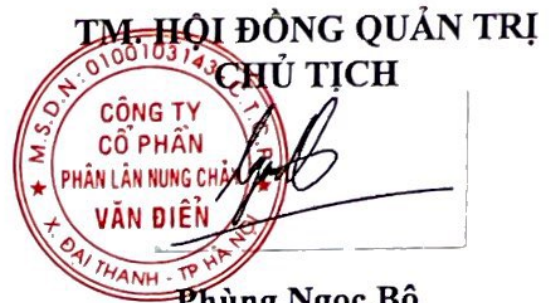 TM. HỘI ĐỒNG QUẢN TRỊ
CHỦ TỊCH
M.S.D.N: 0100103143 C.T.C.P
CÔNG TY
CỔ PHẦN
PHÂN LÂN NUNG CHẢY
VĂN ĐIỂN
X. ĐẠI THANH - TP HÀ NỘI
Phùng Ngọc Bộ